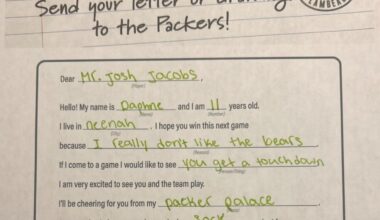 Send your letter or drawing
to the Packers!
LAMBEAU
Dear Mr. Josh Jacobs,
(Player)
Hello! My name is Daphne and I am 11 years old.
(Name) (Number)
I live in neenah. I hope you win this next game
(City)
because I really don't like the bears.
(Reason)
If I come to a game I would like to see you get a touchdown
(Person/Thing)
I am very excited to see you and the team play.
I'll be cheering for you from my packer palace